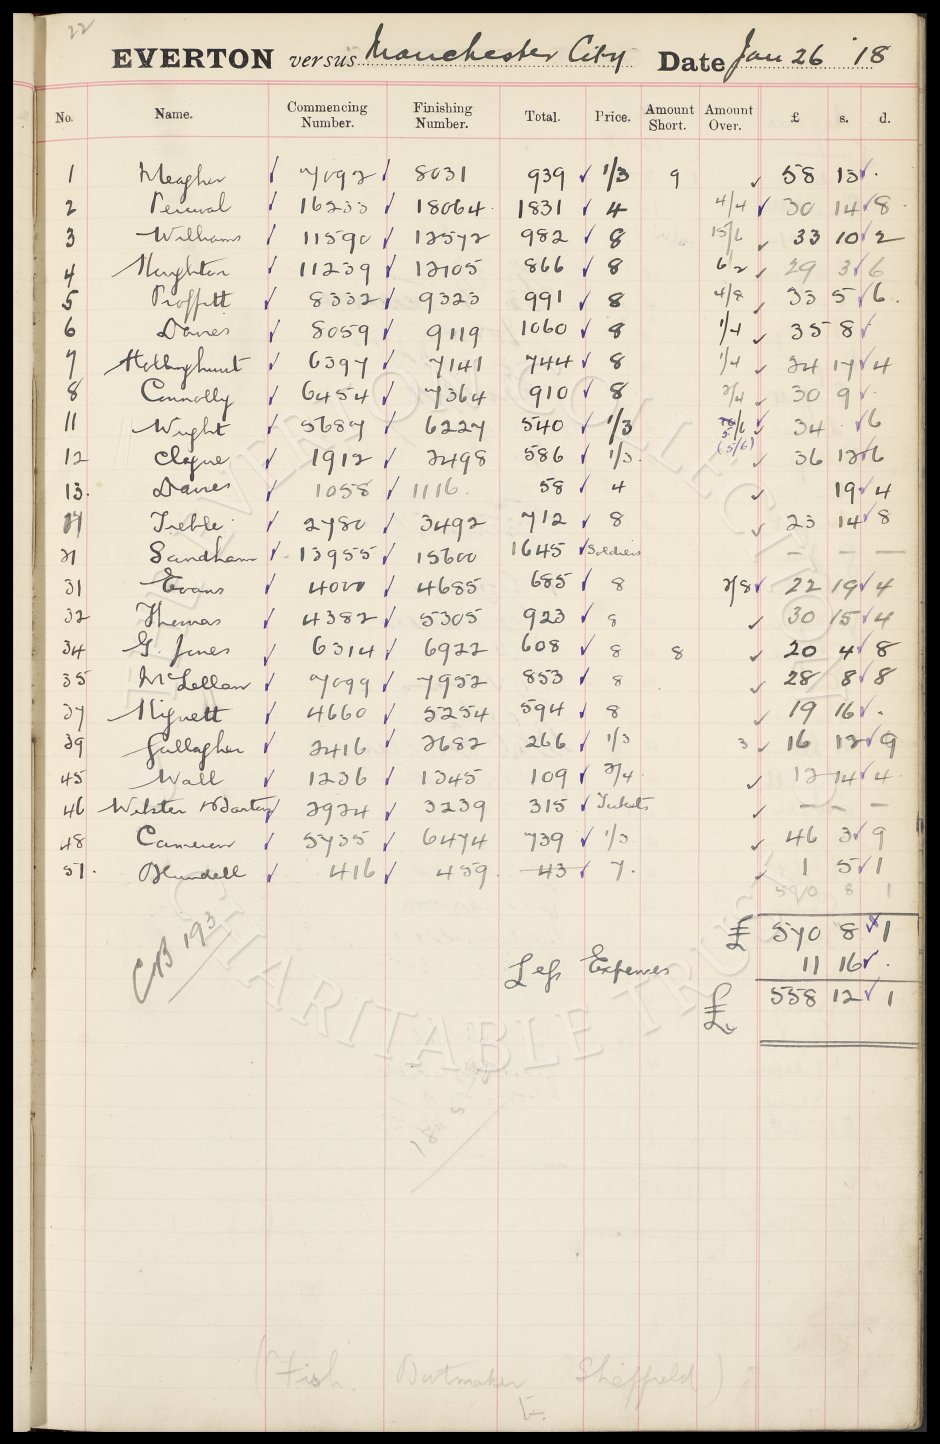 22
EVERTON versus Manchester City Date Jan 26 '18
No. Name. Commencing Number. Finishing Number. Total. Price. Amount Short. Amount Over. £ s. d.
1 Meagher 7092 8031 939 1/3 9 58 13 .
2 Percival 16233 18064 1831 4 4/4 30 14 8
3 Williams 11590 12572 982 8 15/6 33 10 2
4 Houghton 11239 12105 866 8 6/2 29 3 6
5 Proffitt 8332 9323 991 8 4/8 33 5 6
6 Davies 8059 9119 1060 8 1/4 35 8
7 Hollinghurst 6397 7141 744 8 1/4 24 17 4
8 Connolly 6454 7364 910 8 2/4 30 9 .
11 Wright 5687 6227 540 1/3 5/6 34 . 6
(5/6)
12 Clague 1912 2498 586 1/3 36 12 6
13. Davies 1058 1116 58 4 19 4
17 Treble 2780 3492 712 8 23 14 8
21 Sandham 13955 15600 1645 Soldiers — — —
31 Evans 4000 4685 685 8 2/8 22 19 4
32 Thomas 4382 5305 923 8 30 15 4
34 G. Jones 6314 6922 608 8 8 20 4 8
35 McLellan 7099 7952 853 8 28 8 8
37 Mignett 4660 5254 594 8 19 16 .
39 Gallagher 2416 2682 266 1/3 3 16 12 9
45 Wall 1236 1345 109 2/4 12 14 4
46 Webster 2924 3239 315 Tickets — — —
48 Cameron 5735 6474 739 1/3 46 3 9
51. Blundell 416 459 43 7. 1 5 1
570 8 1
£ 570 8 1
CB 193
Less Expenses 11 16 .
£ 558 12 1
THE EVERTON COLLECTION CHARITABLE TRUST
(Fish. Sheffield)